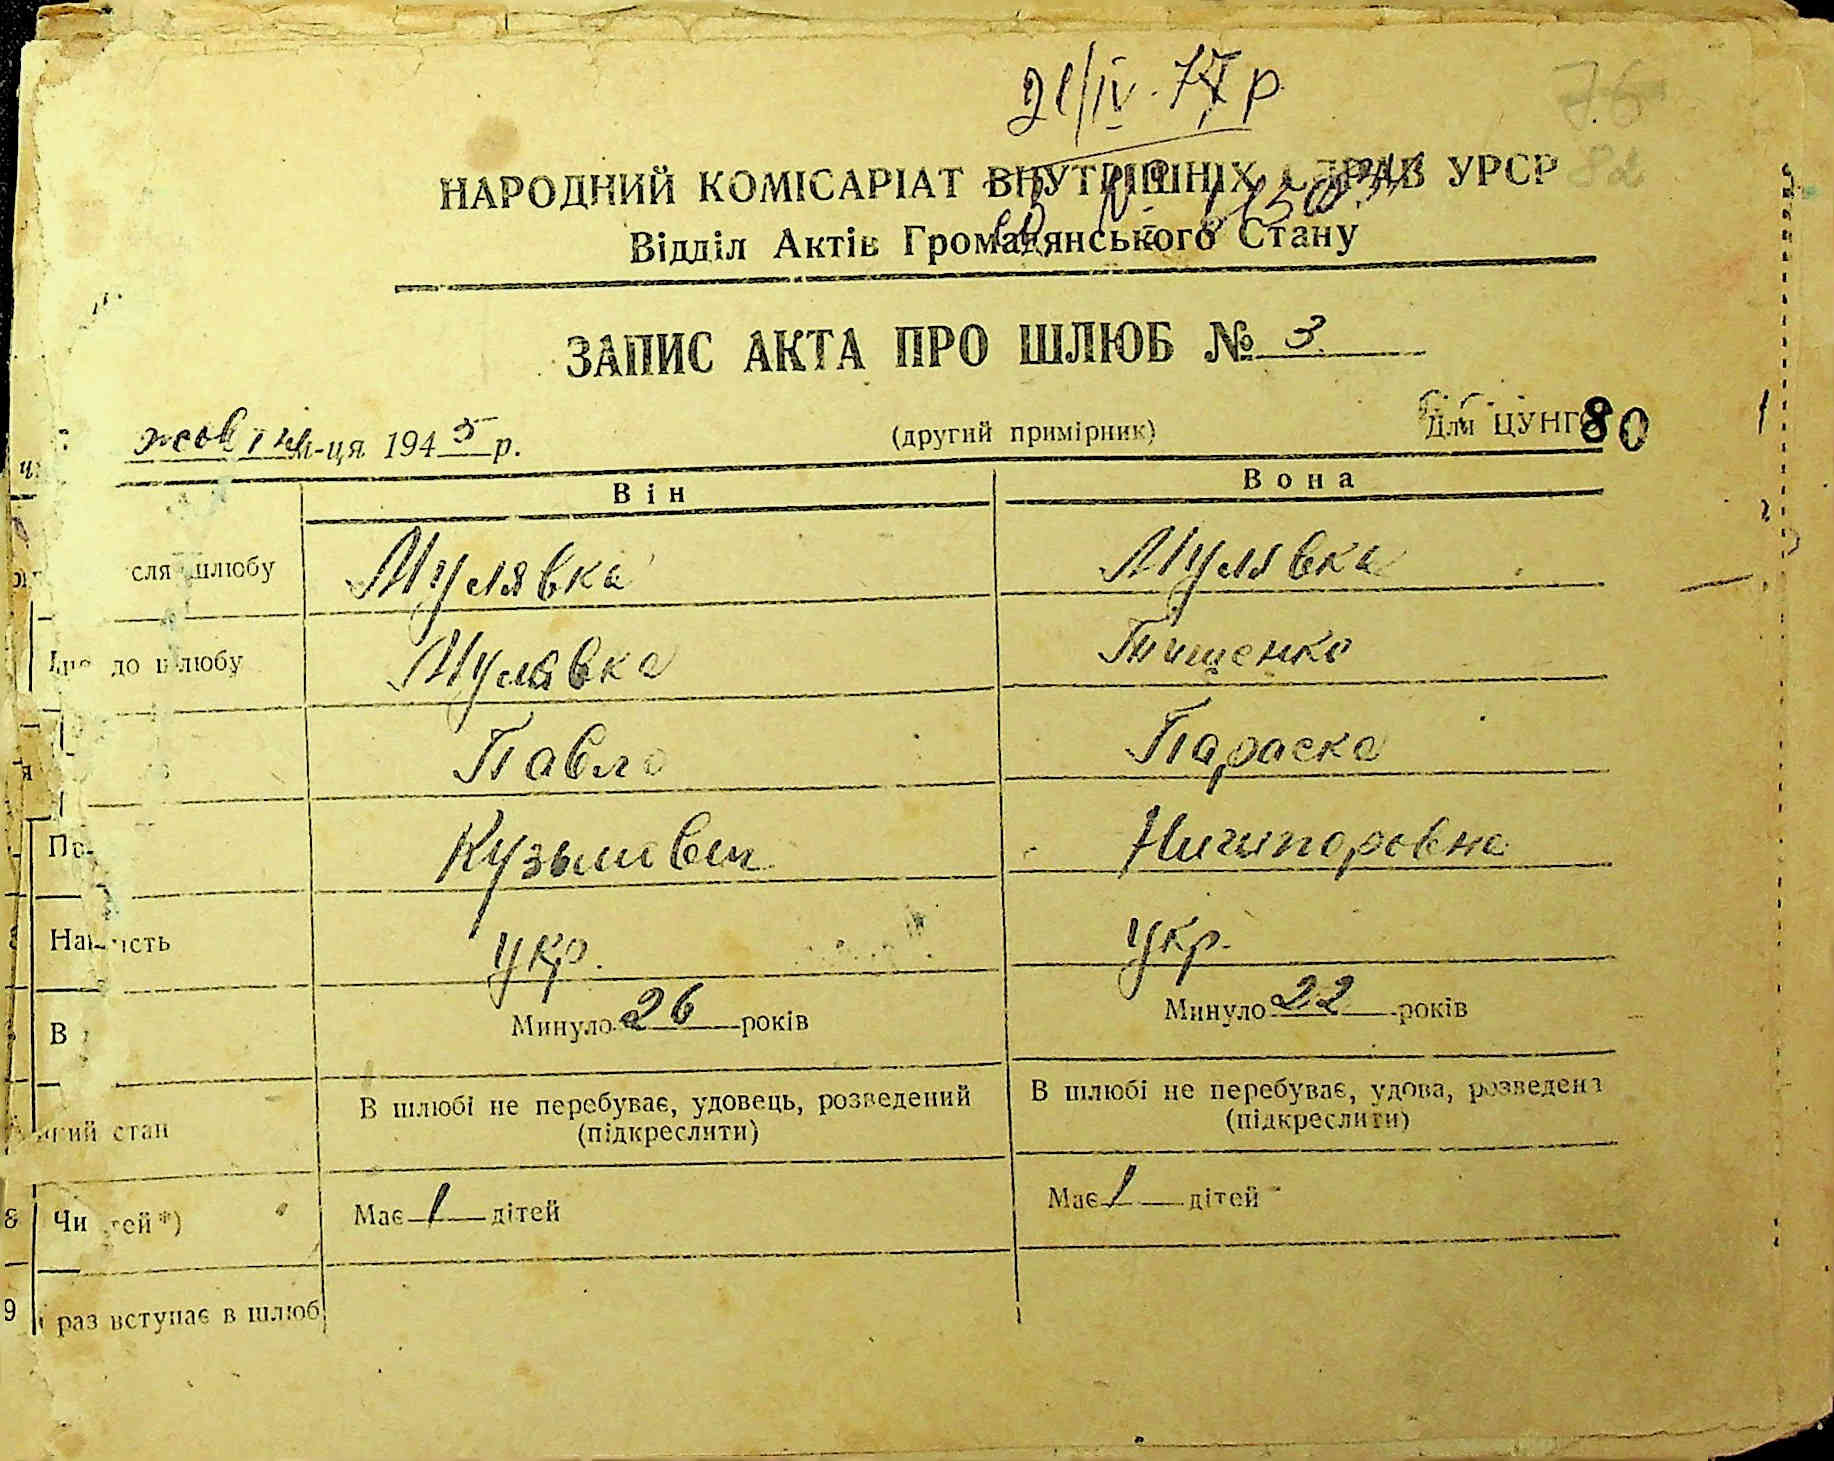 21/IV.77 р
76
НАРОДНИЙ КОМІСАРІАТ ВНУТРІШНІХ СПРАВ УРСР
82
Відділ Актів Громадянського Стану
ЗАПИС АКТА ПРО ШЛЮБ № 3
жовтня м-ця 1945 р.
(другий примірник)
Для ЦУНГО
80
Він Вона
сля шлюбу Мулявка Мулявка
до шлюбу Мулявка Тищенко
Павло Параска
По- Кузьмович Ничипоровна
На ність укр. укр.
В Минуло 26 років Минуло 22 років
В шлюбі не перебуває, удовець, розведений В шлюбі не перебуває, удова, розведена
(підкреслити) (підкреслити)
стан
8 Чи тей*) Має 1 дітей Має 1 дітей
9 раз вступає в шлюб